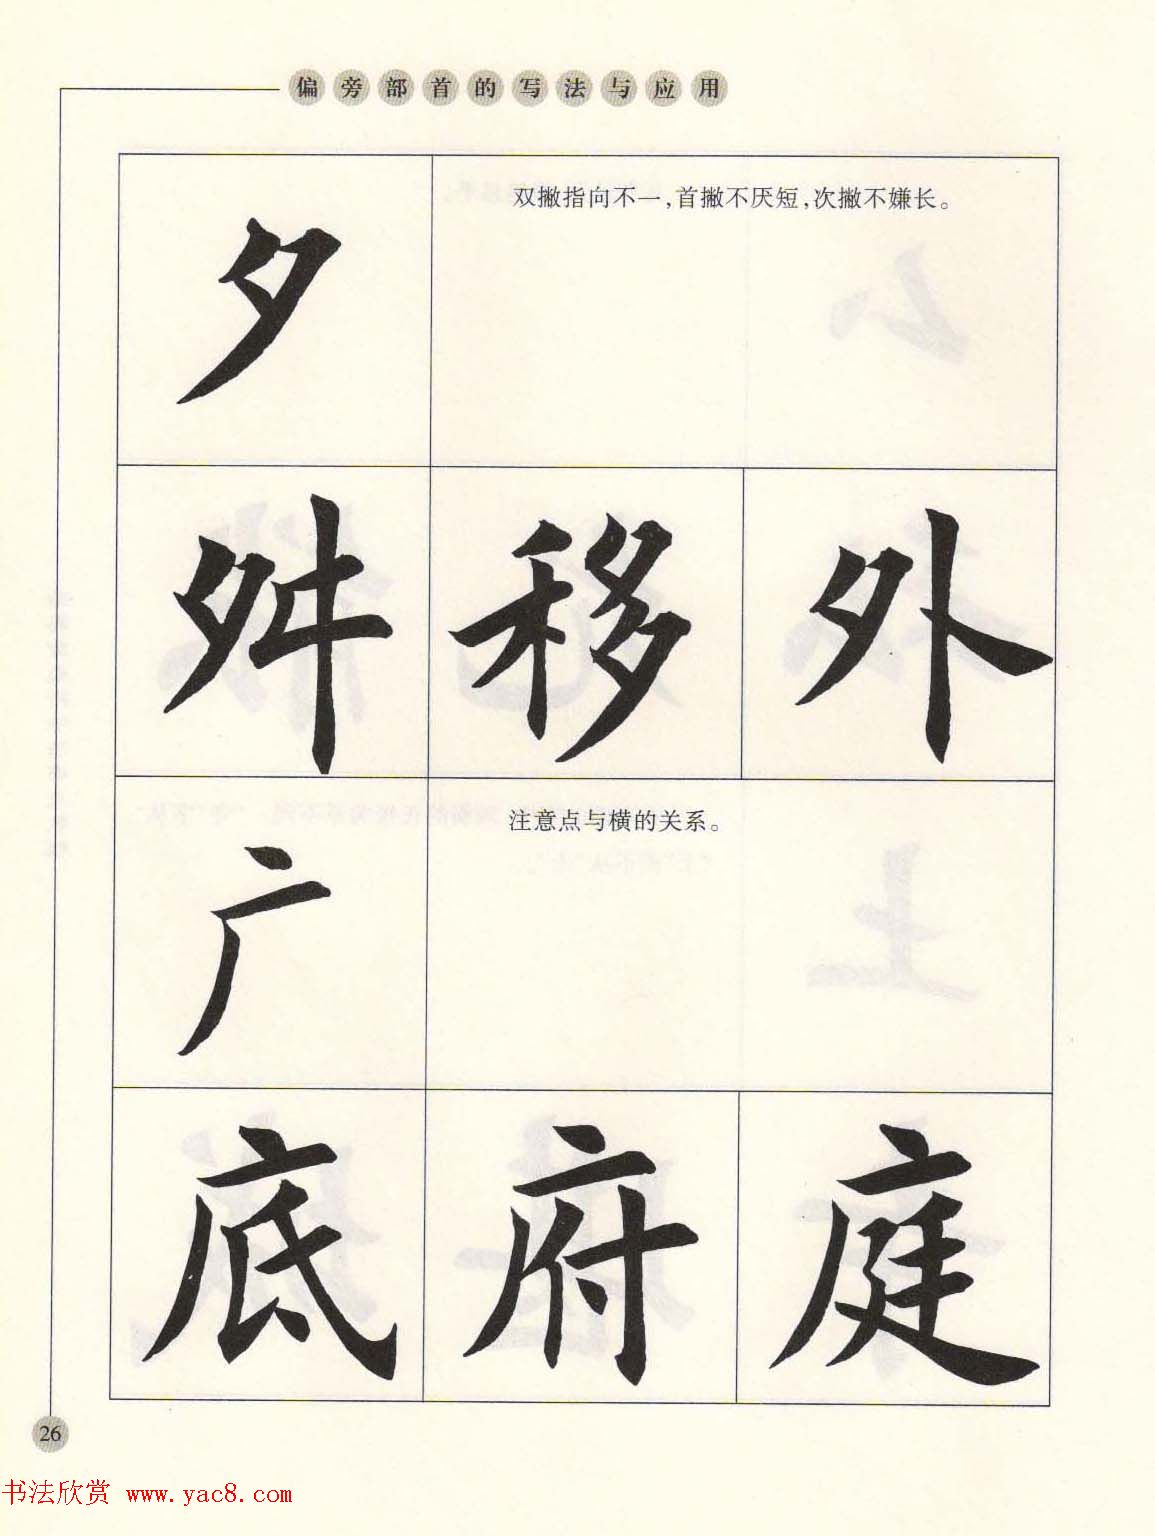 偏旁部首的写法与应用
夕
双撇指向不一,首撇不厌短,次撇不嫌长。
舛 移 外
广
注意点与横的关系。
底 府 庭
26
书法欣赏 www.yac8.com